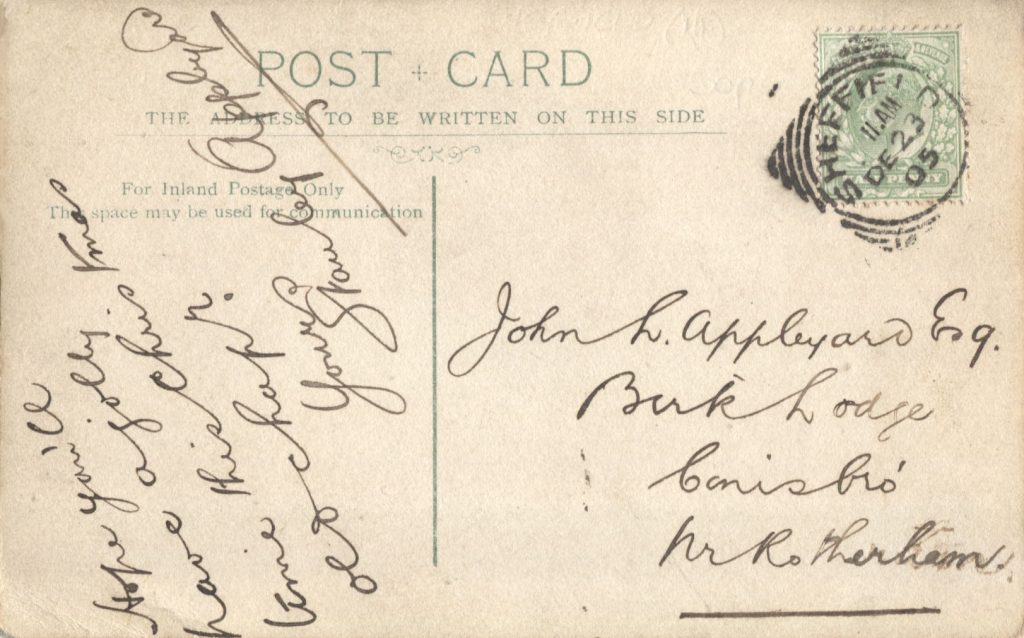 POST CARD
THE ADDRESS TO BE WRITTEN ON THIS SIDE
For Inland Postage Only
This space may be used for communication
SHEFFIELD
11.AM
DE 23
05
Hope you'll
have a jolly Xmas
this
time
chap
Yours
Stanley
John L. Appleyard Esq.
Birk Lodge
Conisbro'
Nr Rotherham.